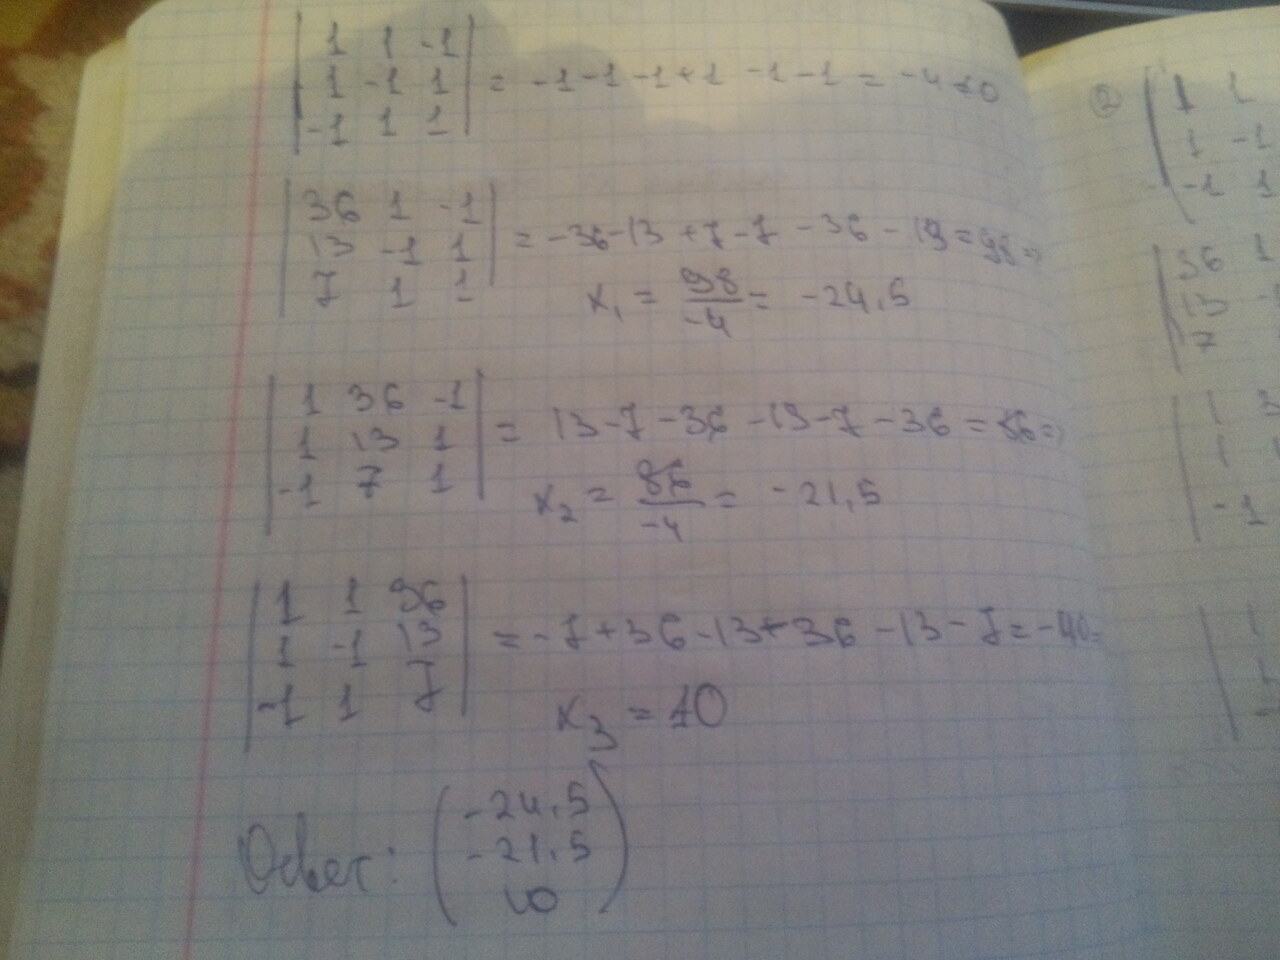 | 1 1 -1 |
| 1 -1 1 | = -1-1-1+1-1-1 = -4 ≠ 0
| -1 1 1 |
| 36 1 -1 |
| 13 -1 1 | = -36-13+7-7-36-13 = 98 ⇒
| 7 1 1 |
x₁ = 98/-4 = -24,5
| 1 36 -1 |
| 1 13 1 | = 13-7-36-13-7-36 = 86 ⇒
| -1 7 1 |
x₂ = 86/-4 = -21,5
| 1 1 36 |
| 1 -1 13 | = -7+36-13+36-13-7 = -40 =
| -1 1 7 |
x₃ = 10
Ответ: ( -24,5
-21,5
10 )
②
1 1
1 -1
-1 1
36 1
13
17
1
-1